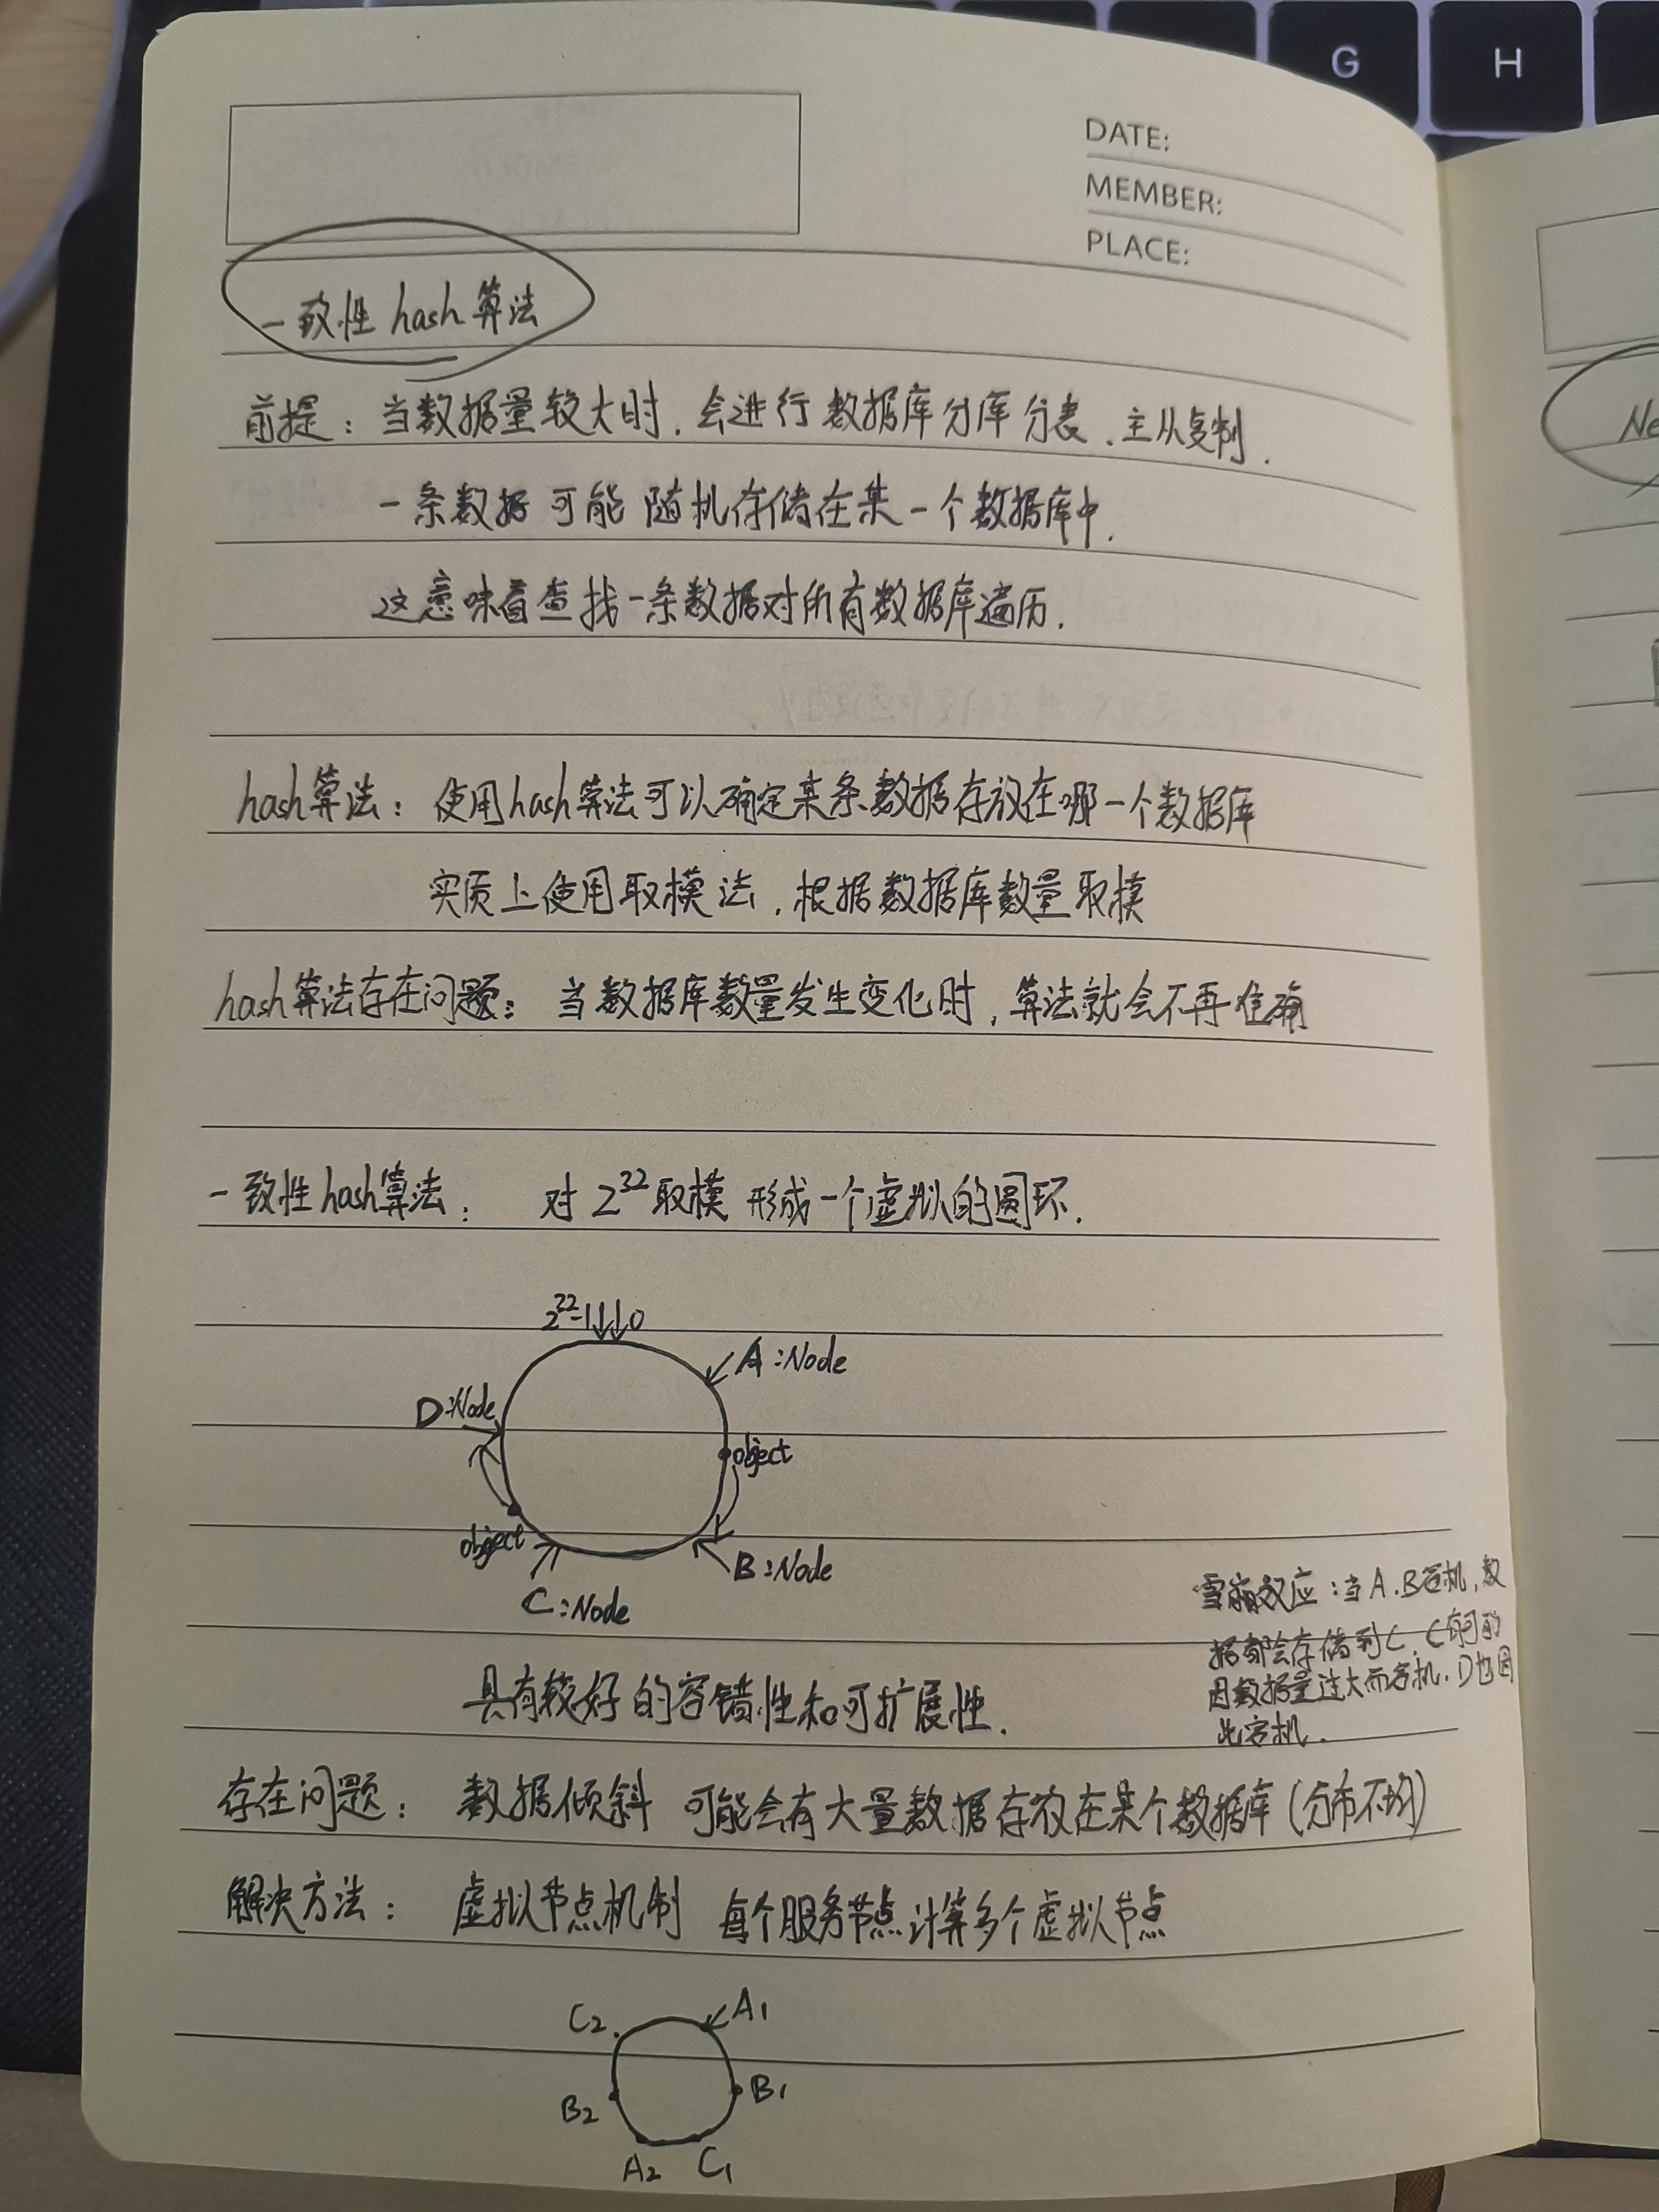 G
H
DATE:
MEMBER:
PLACE:
一致性 hash 算法
前提：当数据量较大时，会进行数据库分库分表、主从复制.
一条数据可能随机存储在某一个数据库中.
这意味着查找一条数据对所有数据库遍历.
hash算法：使用hash算法可以确定某条数据存放在哪一个数据库
实质上使用取模法，根据数据库数量取模
hash算法存在问题：当数据库数量发生变化时，算法就会不再准确
一致性hash算法：对 2³²取模 形成一个虚拟的圆环.
2³²-1 0
A:Node
D:Node
object
object
B:Node
C:Node
雪崩效应：当A.B宕机，数
据都会存储到C，C有可能
因数据量过大而宕机. D也因
此宕机.
具有较好的容错性和可扩展性.
存在问题：数据倾斜 可能会有大量数据存放在某个数据库(分布不均)
解决方法：虚拟节点机制 每个服务节点计算多个虚拟节点
C2
A1
B2
B1
A2
C1
Ne